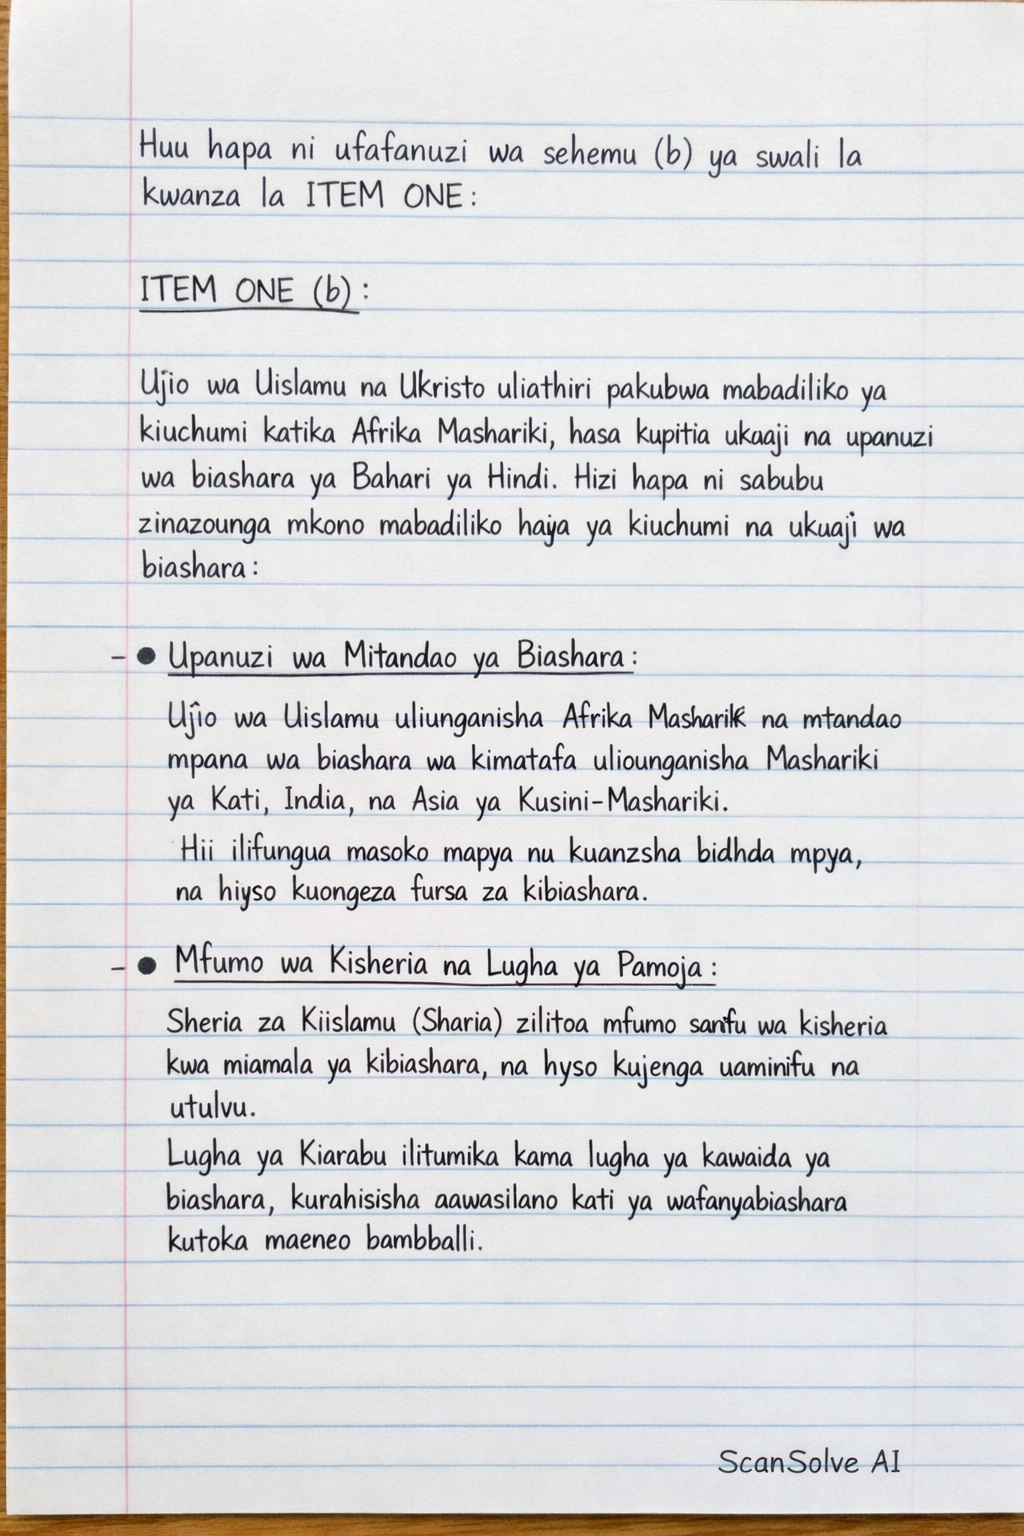 Huu hapa ni ufafanuzi wa sehemu (b) ya swali la
kwanza la ITEM ONE:
ITEM ONE (b):
Ujio wa Uislamu na Ukristo uliathiri pakubwa mabadiliko ya
kiuchumi katika Afrika Mashariki, hasa kupitia ukaaji na upanuzi
wa biashara ya Bahari ya Hindi. Hizi hapa ni sabubu
zinazounga mkono mabadiliko haya ya kiuchumi na ukuaji wa
biashara:
- ● Upanuzi wa Mitandao ya Biashara:
Ujio wa Uislamu uliunganisha Afrika Masharik na mtandao
mpana wa biashara wa kimatafa uliounganisha Mashariki
ya Kati, India, na Asia ya Kusini-Mashariki.
Hii ilifungua masoko mapya nu kuanzsha bidhda mpya,
na hiyso kuongeza fursa za kibiashara.
- ● Mfumo wa Kisheria na Lugha ya Pamoja:
Sheria za Kiislamu (Sharia) zilitoa mfumo sanifu wa kisheria
kwa miamala ya kibiashara, na hyso kujenga uaminifu na
utulvu.
Lugha ya Kiarabu ilitumika kama lugha ya kawaida ya
biashara, kurahisisha aawasilano kati ya wafanyabiashara
kutoka maeneo bambballi.
ScanSolve AI